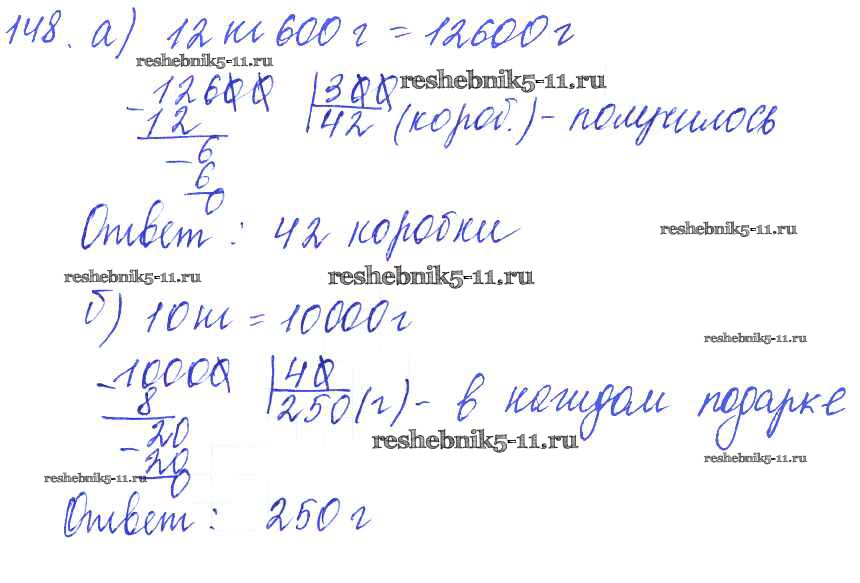 148. а) 12 кг 600 г = 12600 г
reshebnik5-11.ru
reshebnik5-11.ru
- 12600 | 300
12 42 (короб.) - получилось
- 6
6
0
Ответ: 42 коробки
reshebnik5-11.ru
reshebnik5-11.ru
reshebnik5-11.ru
б) 10 кг = 10000 г
reshebnik5-11.ru
- 10000 | 40
8 250 (г) - в каждом подарке
- 20
reshebnik5-11.ru
20
reshebnik5-11.ru
reshebnik5-11.ru
0
Ответ: 250 г